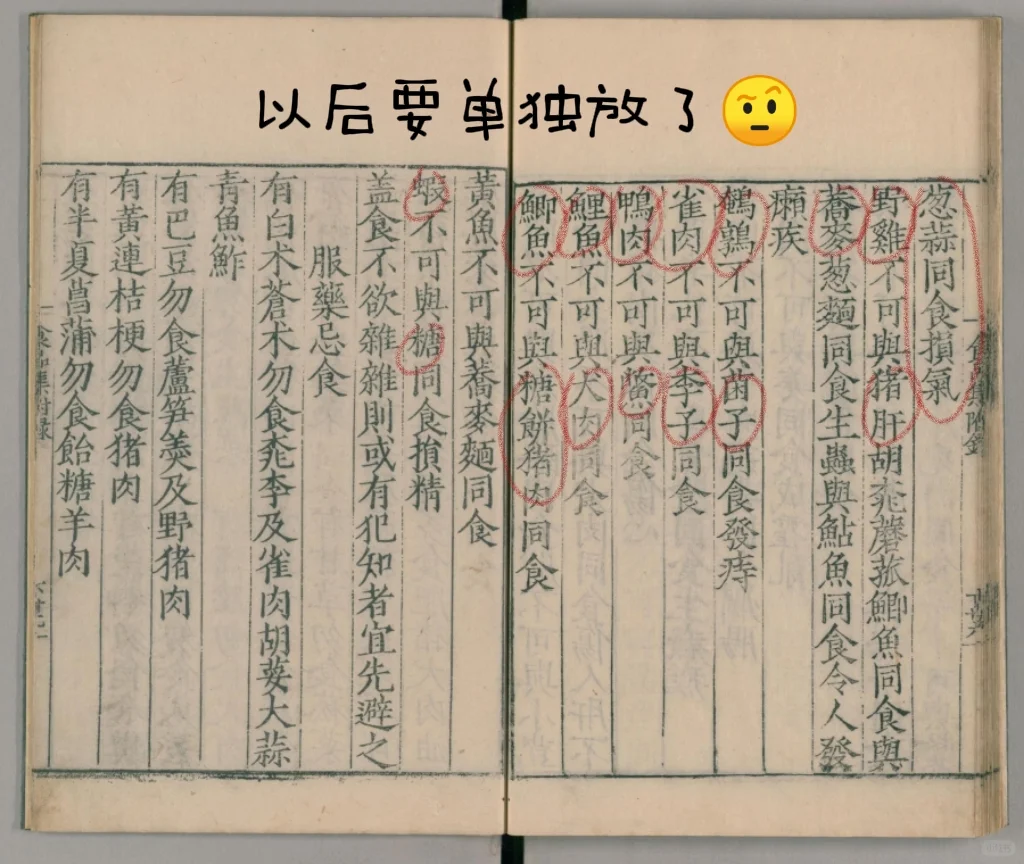 以后要单独放了🤨
葱蒜同食損氣
野雞不可與猪肝胡桃蘑菰鯽魚同食與
蕎麥葱麵同食生蟲與鮎魚同食令人發
癩疾
鵪鶉不可與菌子同食發痔
雀肉不可與李子同食
鴨肉不可與鱉同食
鯉魚不可與犬肉同食
鯽魚不可與糖餅猪肉同食
黃魚不可與蕎麥麵同食
蝦不可與糖同食損精
盖食不欲雜雜則或有犯知者宜先避之
服藥忌食
有白术蒼术勿食桃李及雀肉胡荽大蒜
青魚鮓
有巴豆勿食蘆笋羮及野猪肉
有黃連桔梗勿食猪肉
有半夏菖蒲勿食飴糖羊肉